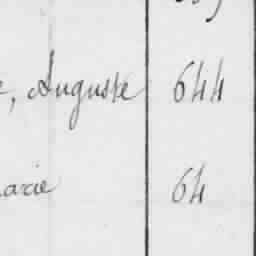 , Auguste 644
arie 64